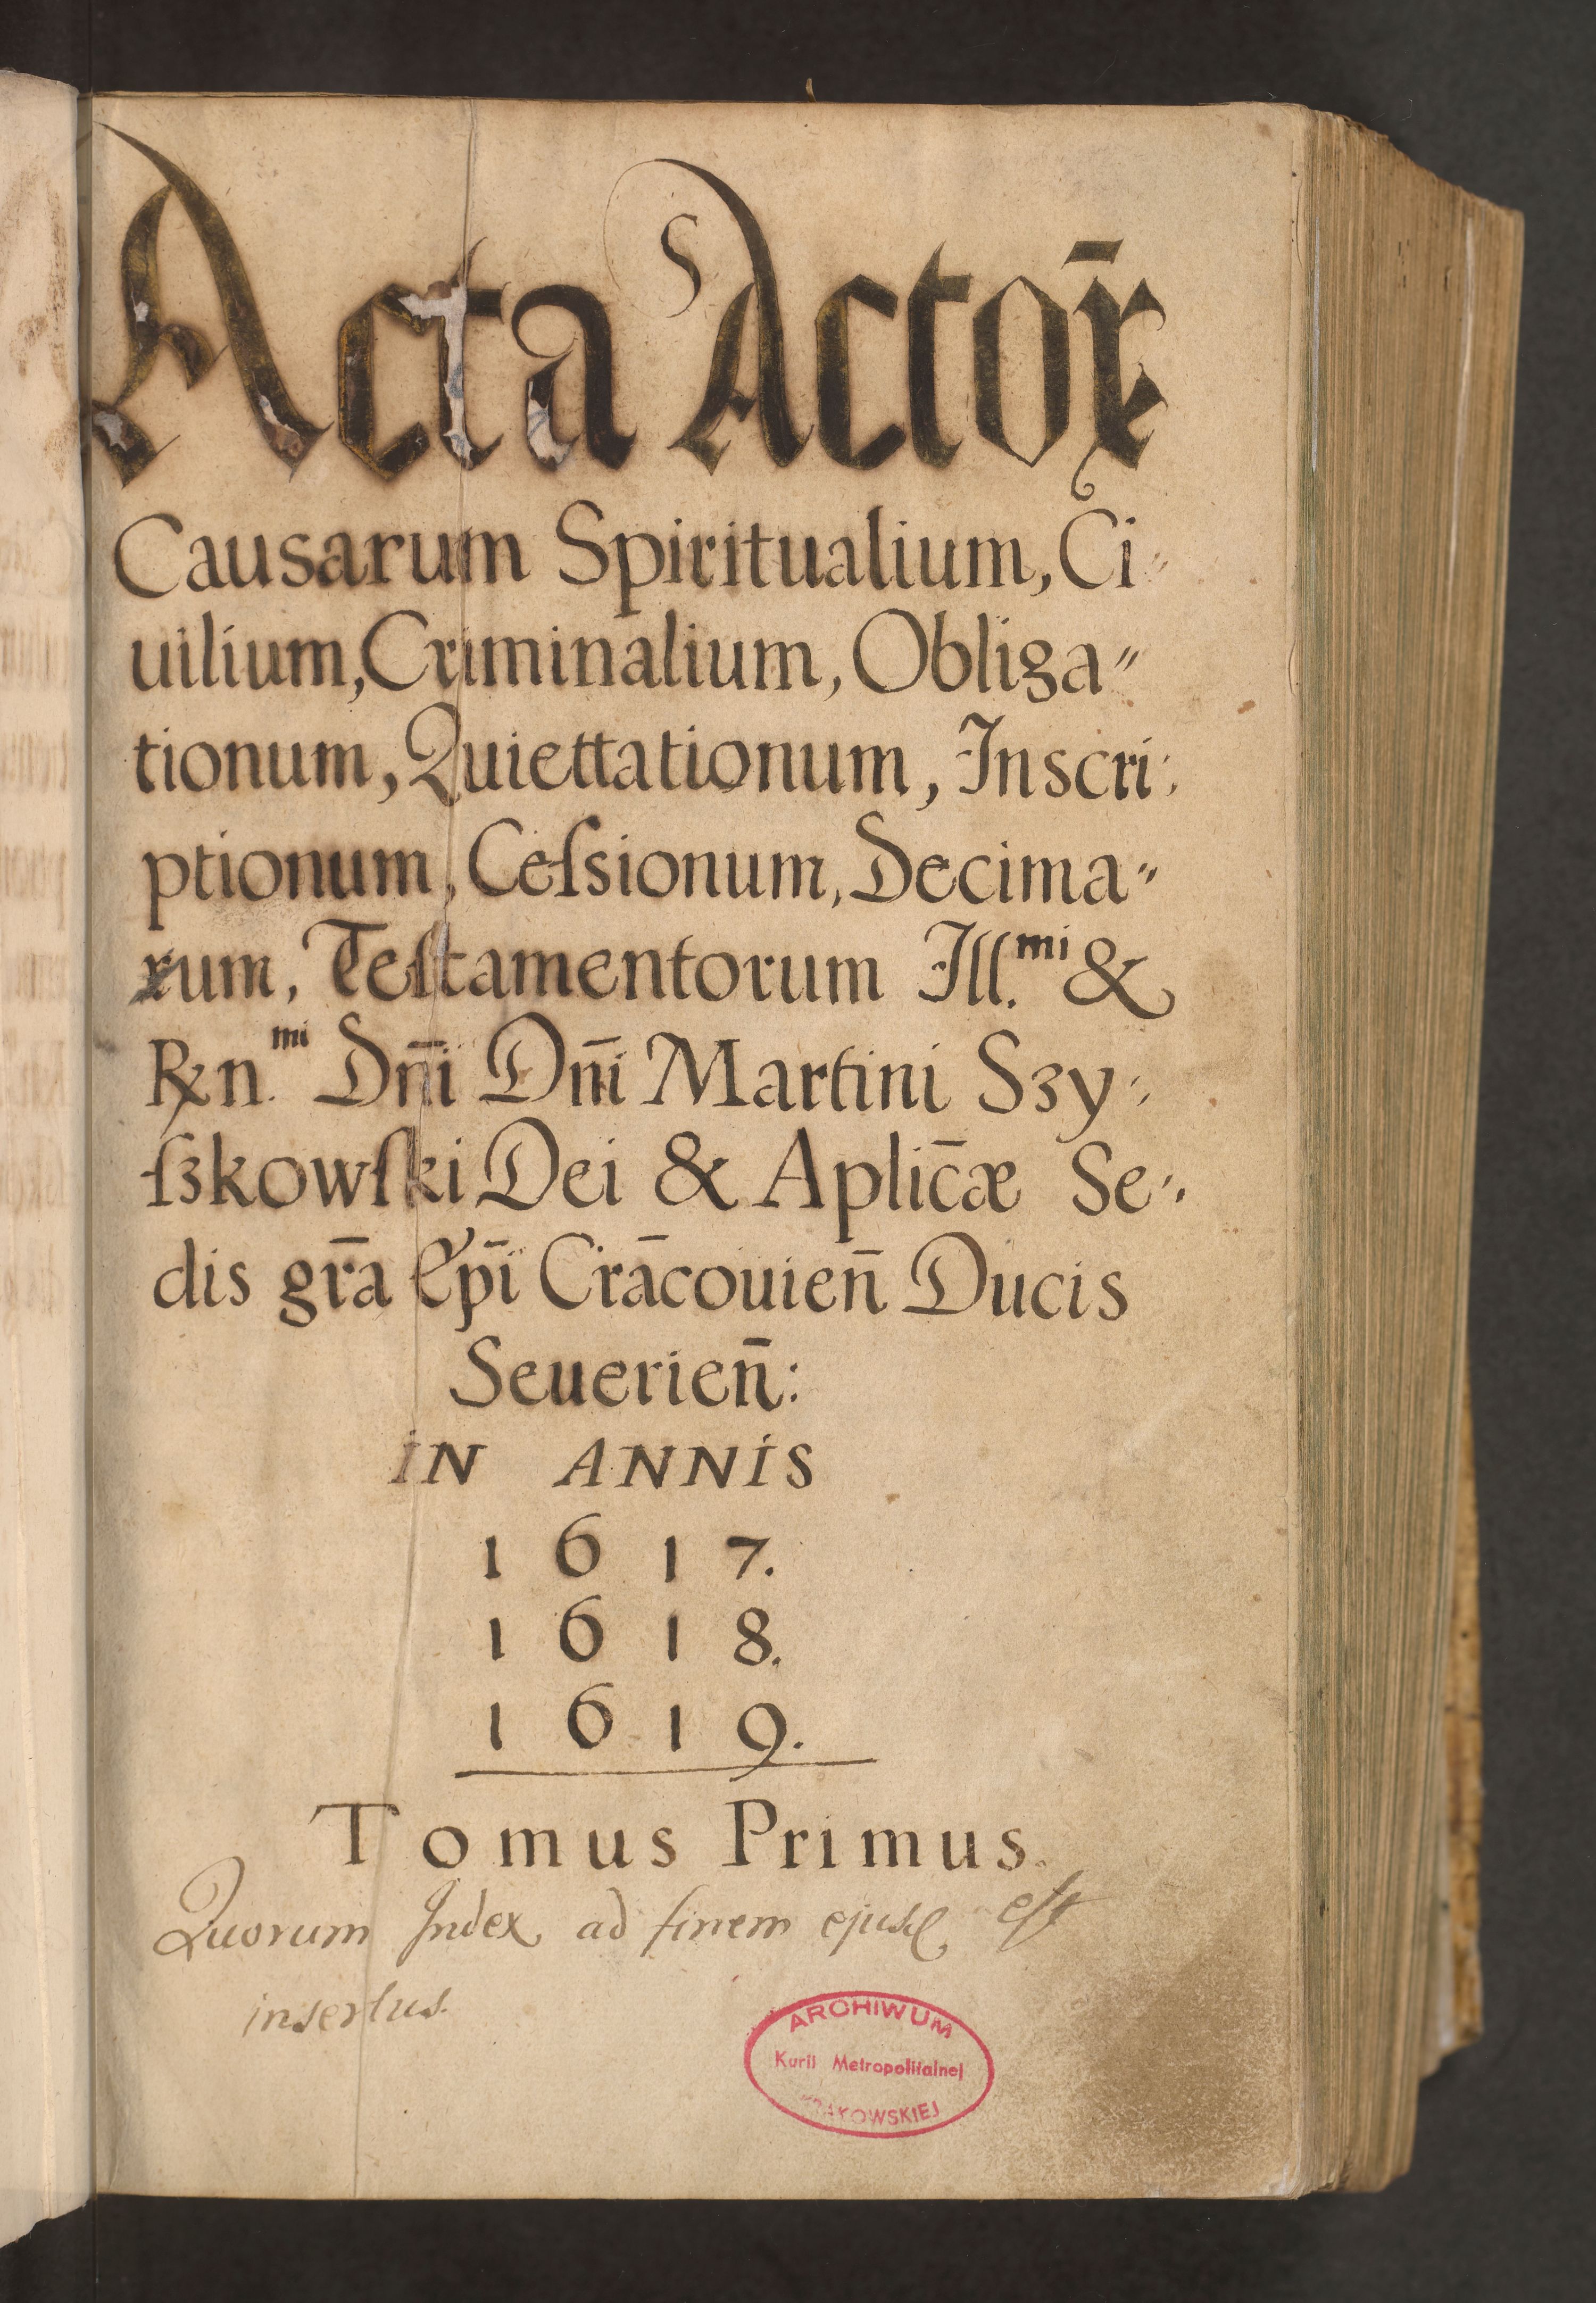 Acta Actor̄
Causarum Spiritualium, Ci⸗
uilium, Criminalium, Obliga⸗
tionum, Quiettationum, Inscri:
ptionum, Ceſsionum, Decima⸗
rum, Teſtamentorum Ill.mi &
Rxn.mi Dn̄i Dn̄i Martini Szy:
ſzkowſki Dei & Aplic̄æ Se:
dis gr̄a Ep̄i Crācouien̄ Ducis
Seuerien̄:
IN ANNIS
1617.
1618.
1619.
Tomus Primus.
Quorum Index ad finem ejusd eſt
insertus.
ARCHIWUM
Kurii Metropolitalnej
KRAKOWSKIEJ